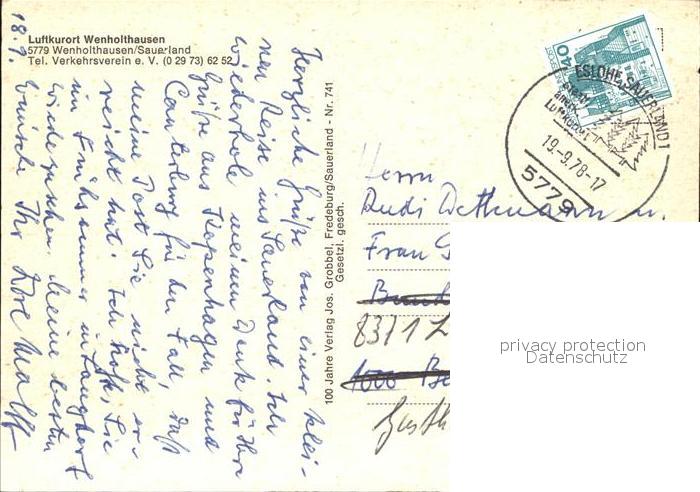 Luftkurort Wenholthausen
5779 Wenholthausen/Sauerland
Tel. Verkehrsverein e. V. (0 29 73) 62 52
18.9.
Herzliche Grüße von einer klei-
nen Reise ins Sauerland. Ich
wiederhole meinen Dank für Ihre
Grüße aus Kopenhagen und
Canterbury für den Fall, daß
meine Post Sie nicht er-
reicht hat. Ich hoffe, Sie
im Frühsommer in Langdorf
wiederzusehen. Meine besten
Wünsche Ihr
100 Jahre Verlag Jos. Grobbel, Fredeburg/Sauerland - Nr. 741
Gesetzl. gesch.
40
ESLOHE, SAUERLAND 1
Luftkurort
19.-9.78-17
5779
Herrn
Rudi Dettmann u.
Frau G
8371 L
1000 Be
Gasth
privacy protection
Datenschutz